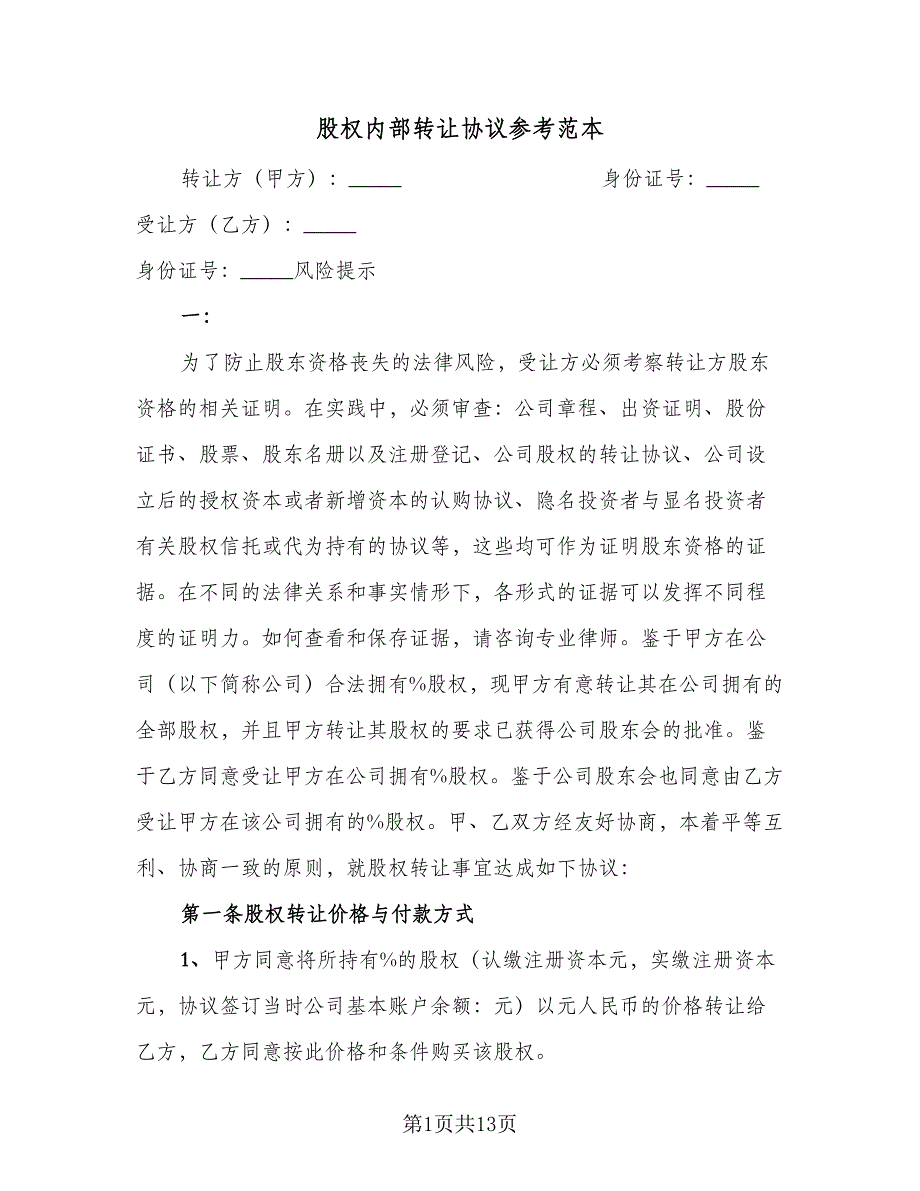 股权内部转让协议参考范本
转让方（甲方）：_____ 身份证号：_____
受让方（乙方）：_____
身份证号：_____风险提示
一：
为了防止股东资格丧失的法律风险，受让方必须考察转让方股东
资格的相关证明。在实践中，必须审查：公司章程、出资证明、股份
证书、股票、股东名册以及注册登记、公司股权的转让协议、公司设
立后的授权资本或者新增资本的认购协议、隐名投资者与显名投资者
有关股权信托或代为持有的协议等，这些均可作为证明股东资格的证
据。在不同的法律关系和事实情形下，各形式的证据可以发挥不同程
度的证明力。如何查看和保存证据，请咨询专业律师。鉴于甲方在公
司（以下简称公司）合法拥有%股权，现甲方有意转让其在公司拥有的
全部股权，并且甲方转让其股权的要求已获得公司股东会的批准。鉴
于乙方同意受让甲方在公司拥有%股权。鉴于公司股东会也同意由乙方
受让甲方在该公司拥有的%股权。甲、乙双方经友好协商，本着平等互
利、协商一致的原则，就股权转让事宜达成如下协议：
第一条股权转让价格与付款方式
1、甲方同意将所持有%的股权（认缴注册资本元，实缴注册资本
元，协议签订当时公司基本账户余额：元）以元人民币的价格转让给
乙方，乙方同意按此价格和条件购买该股权。
第1页共13页